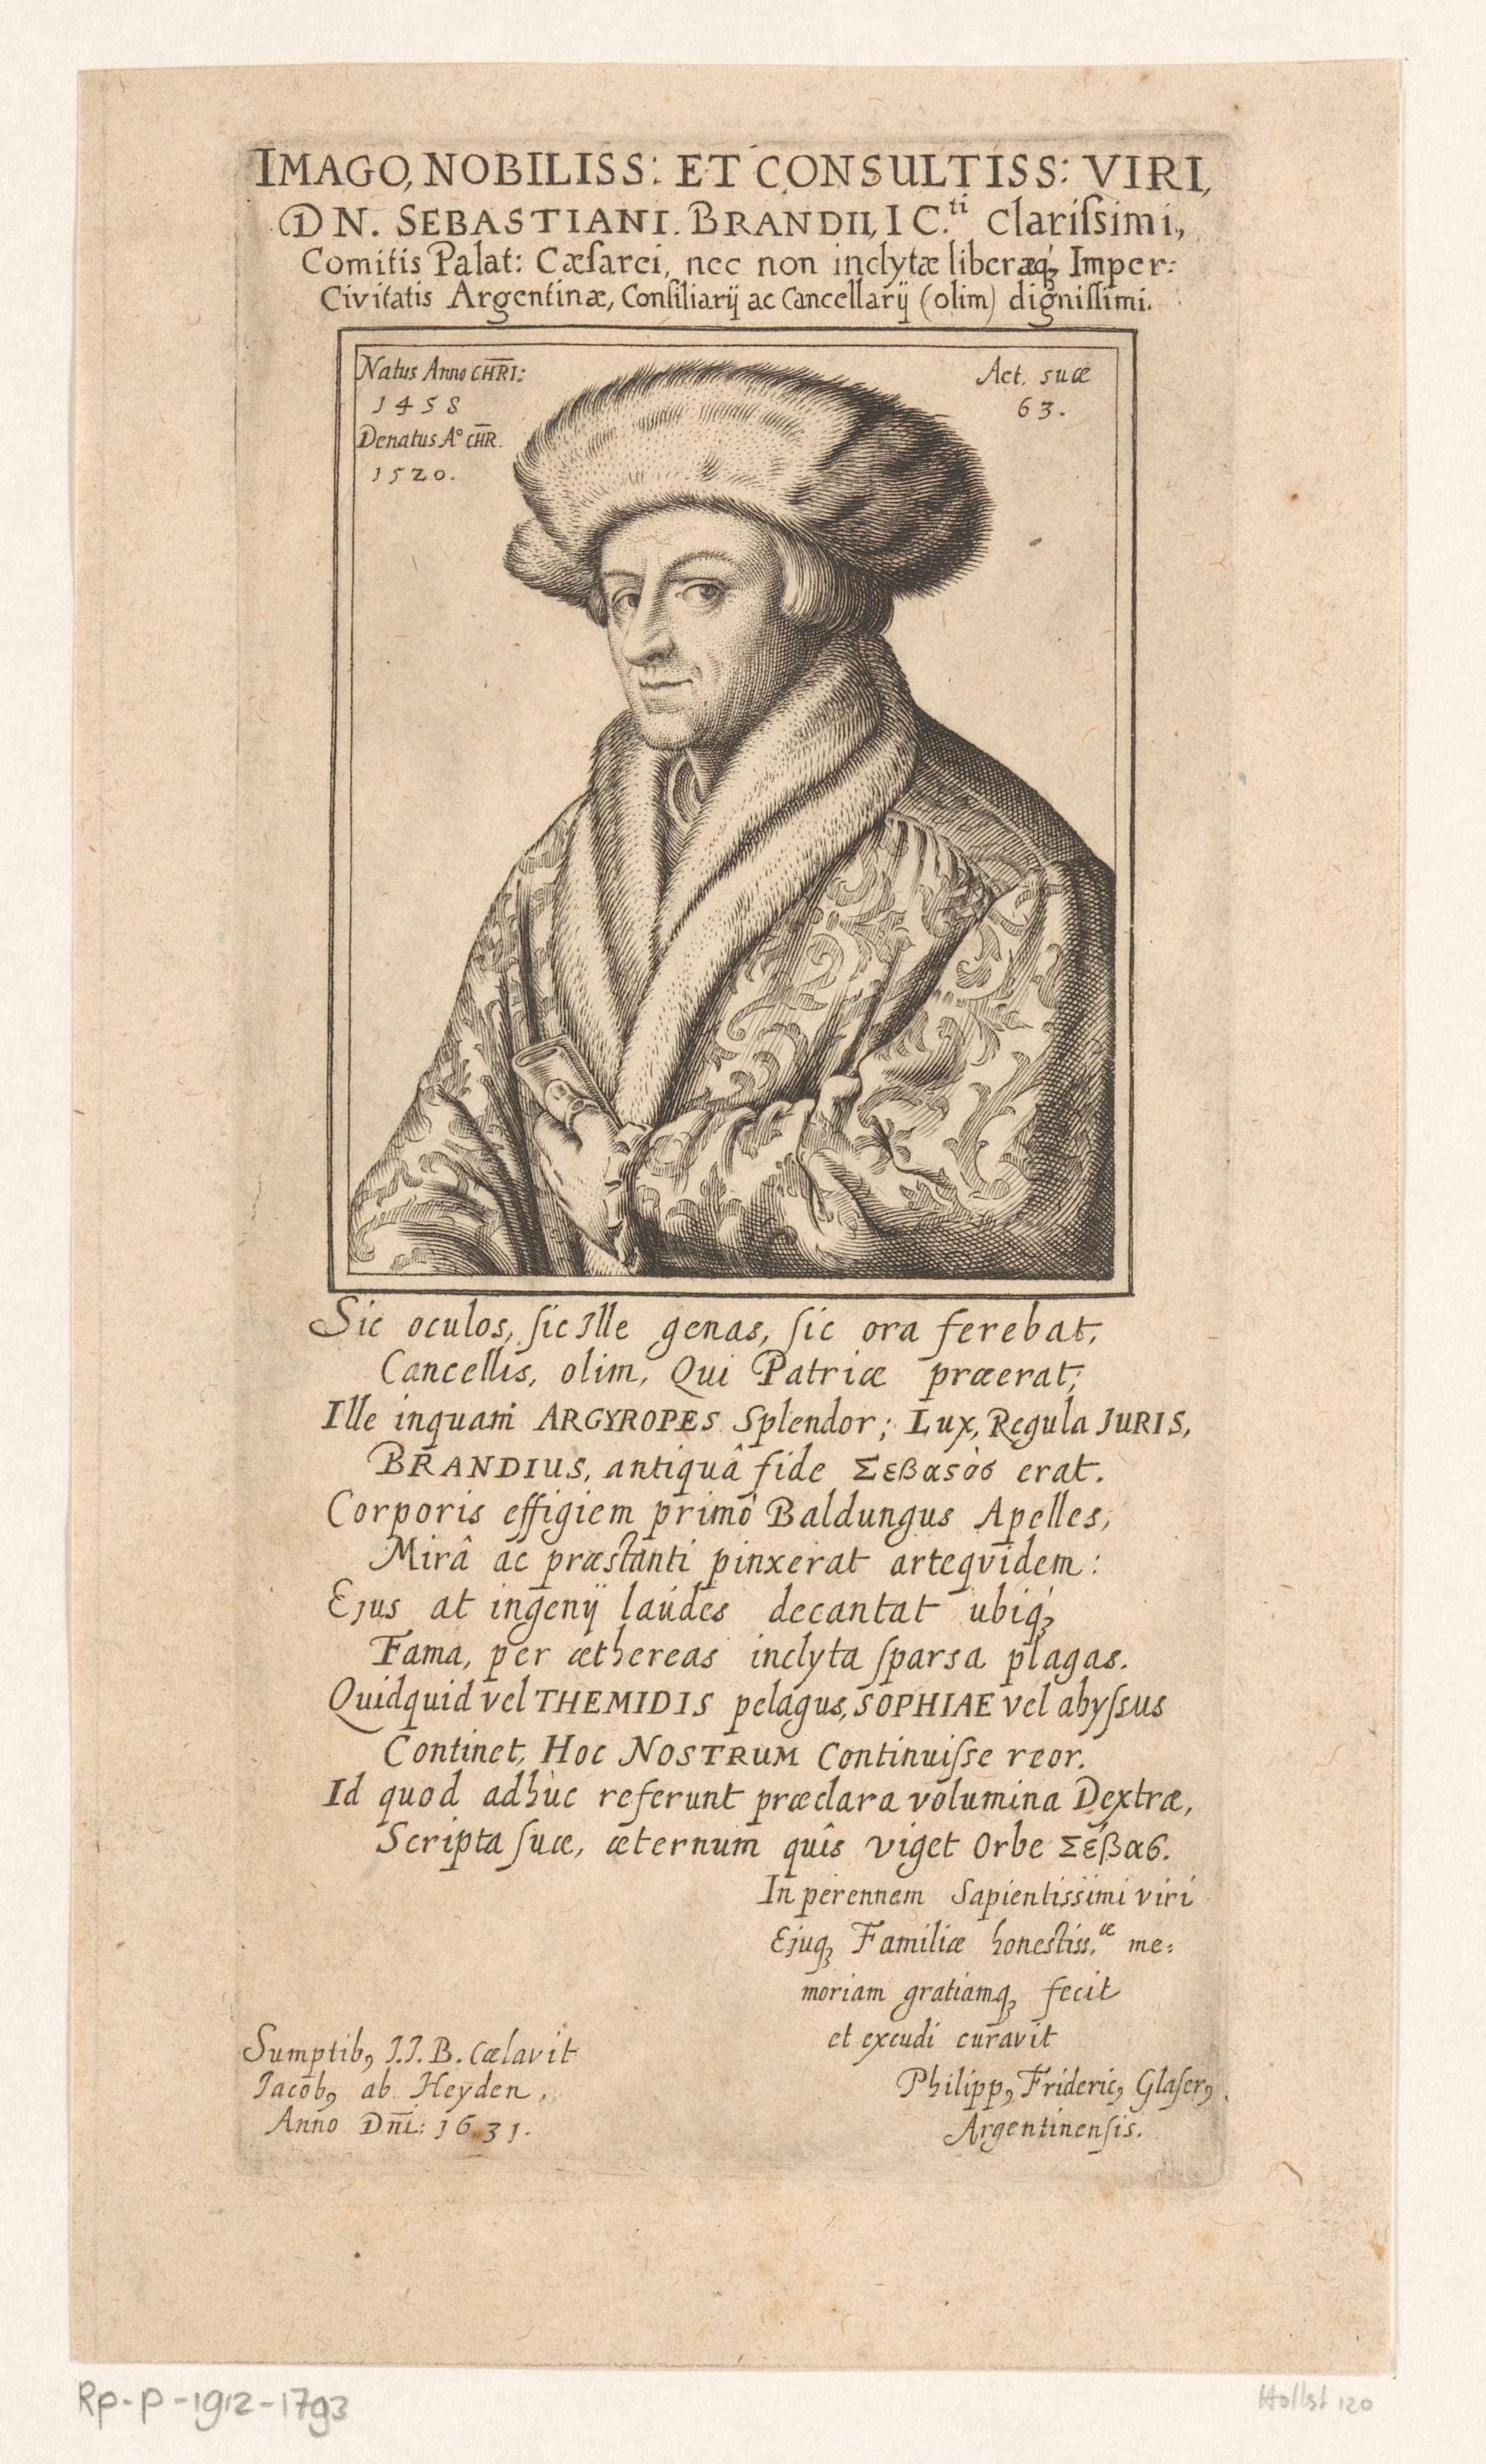 IMAGO, NOBILISS: ET CONSULTISS: VIRI,
DN. SEBASTIANI. BRANDII, I C.ti Clariſsimi,
Comitis Palat: Cæſarei, nec non inclytæ liberæq́ꝫ Imper:
Civitatis Argentinæ, Conſiliarij ac Cancellarij (olim) digniſſimi.
Natus Anno CHR̅I:
1458
Denatus A° CH̅R.
1520.
Aet. suæ
63.
Sic oculos, ſic Ille genas, ſic ora ferebat,
Cancellis, olim, Qui Patriæ præerat;
Ille inquam ARGYROPES Splendor; Lux, Regula JURIS,
BRANDIUS, antiquâ fide Σεβαςὸς erat.
Corporis effigiem primò Baldungus Apelles,
Mirâ ac præstanti pinxerat arteqvidem:
Ejus at ingenij laudes decantat ubiq́ꝫ
Fama, per æthereas inclyta ſparsa plagas.
Quidquid vel THEMIDIS pelagus, SOPHIAE vel abyſsus
Continet, Hoc NOSTRUM Continuiſse reor.
Id quod adhùc referunt præclara volumina Dextræ,
Scripta ſuæ, æternum quîs viget Orbe Σέβας.
In perennem Sapientissimi viri
Ejuqꝫ Familiæ honestiss.æ me:
moriam gratiamqꝫ fecit
et excudi curavit
Philippꝯ Fridericꝯ Glaſerꝯ.
Argentinenſis.
Sumptibꝯ I.I.B. Cælavit
Jacobꝯ ab Heyden,
Anno Dn̅i: 1631.
Rp-P-1912-1793
Hollst 120